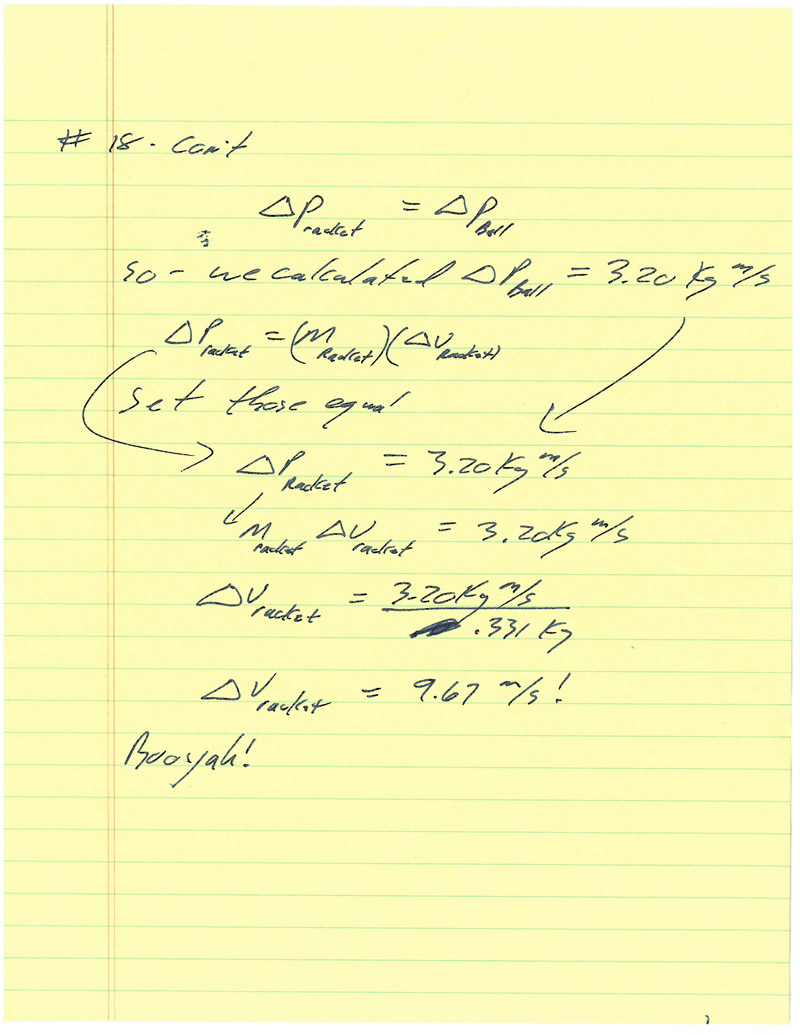 # 18 - Con't
ΔP racket = ΔP Ball
so - we calculated ΔP Ball = 3.20 Kg m/s
ΔP racket = (M Racket)(ΔV Racket)
Set those equal
ΔP Racket = 3.20 Kg m/s
M racket ΔV racket = 3.20 Kg m/s
ΔV racket = 3.20 Kg m/s
.331 Kg
ΔV racket = 9.67 m/s!
Booyah!